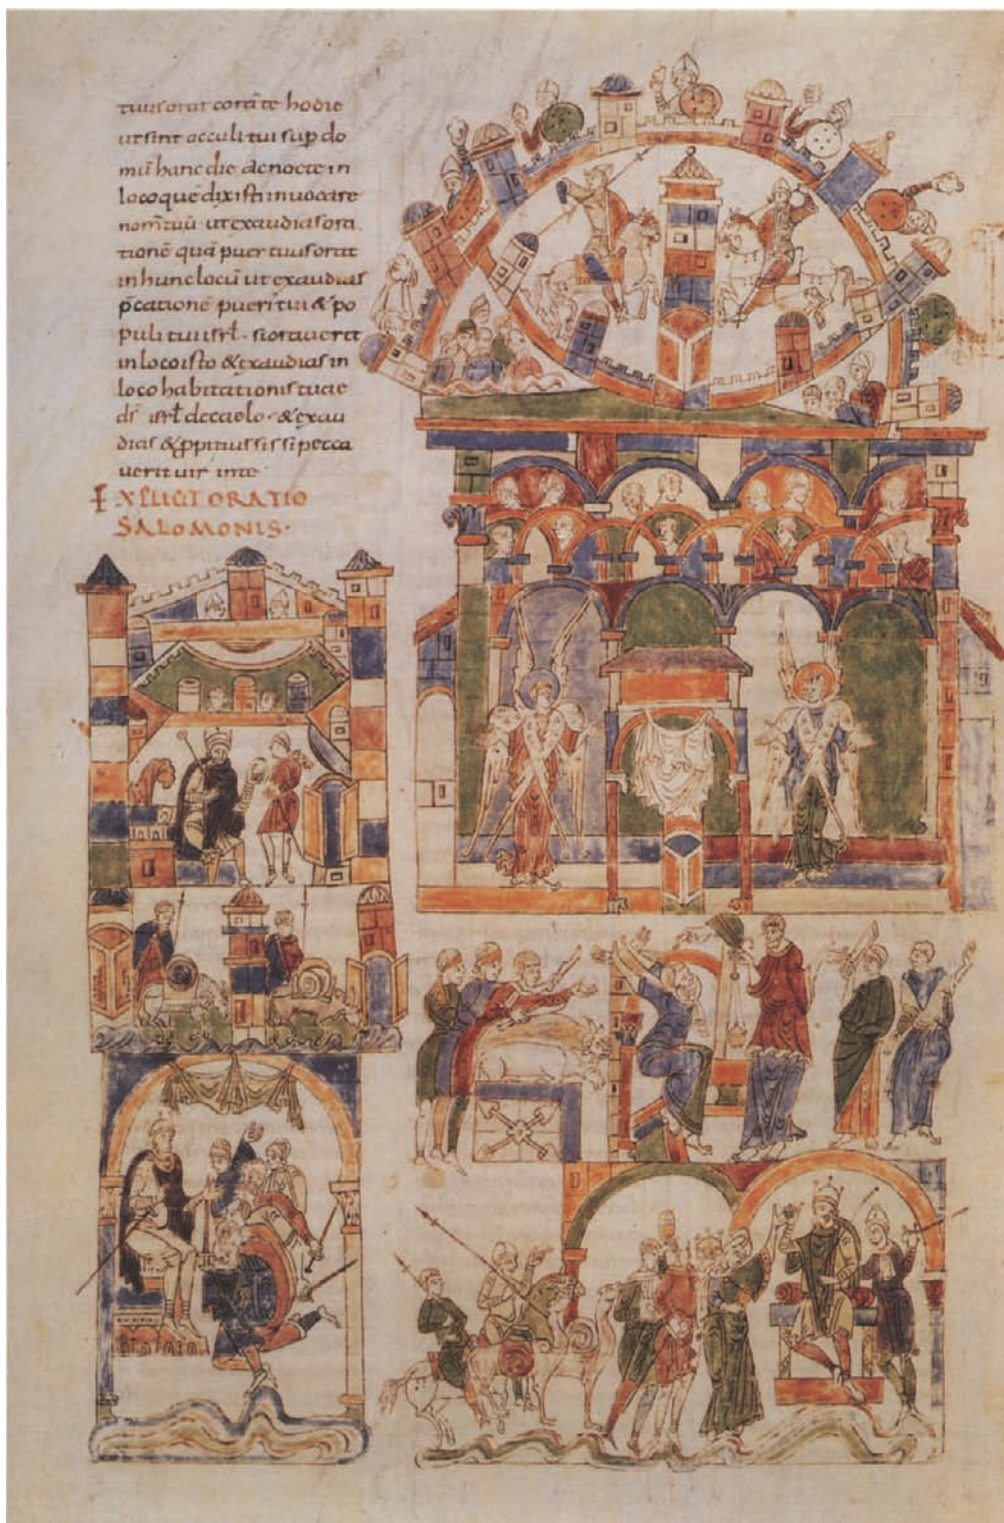 tuus orat corāte hodie
ut sint occuli tui sup do
mū hanc die ac nocte in
loco quē dixisti invocare
nom̄ tuū ut exaudias ora
tionē quā puer tuus orat
in hunc locū ut exaudias
p̄cationē pueri tui & po
puli tui isrł · si oraverit
in loco isto & exaudias in
loco habitationis tuae
ds̄ isrł de caelo · & exau
dias & ppitius sis si pecca
verit vir in te ·
EXPLICIT ORATIO
SALOMONIS ·